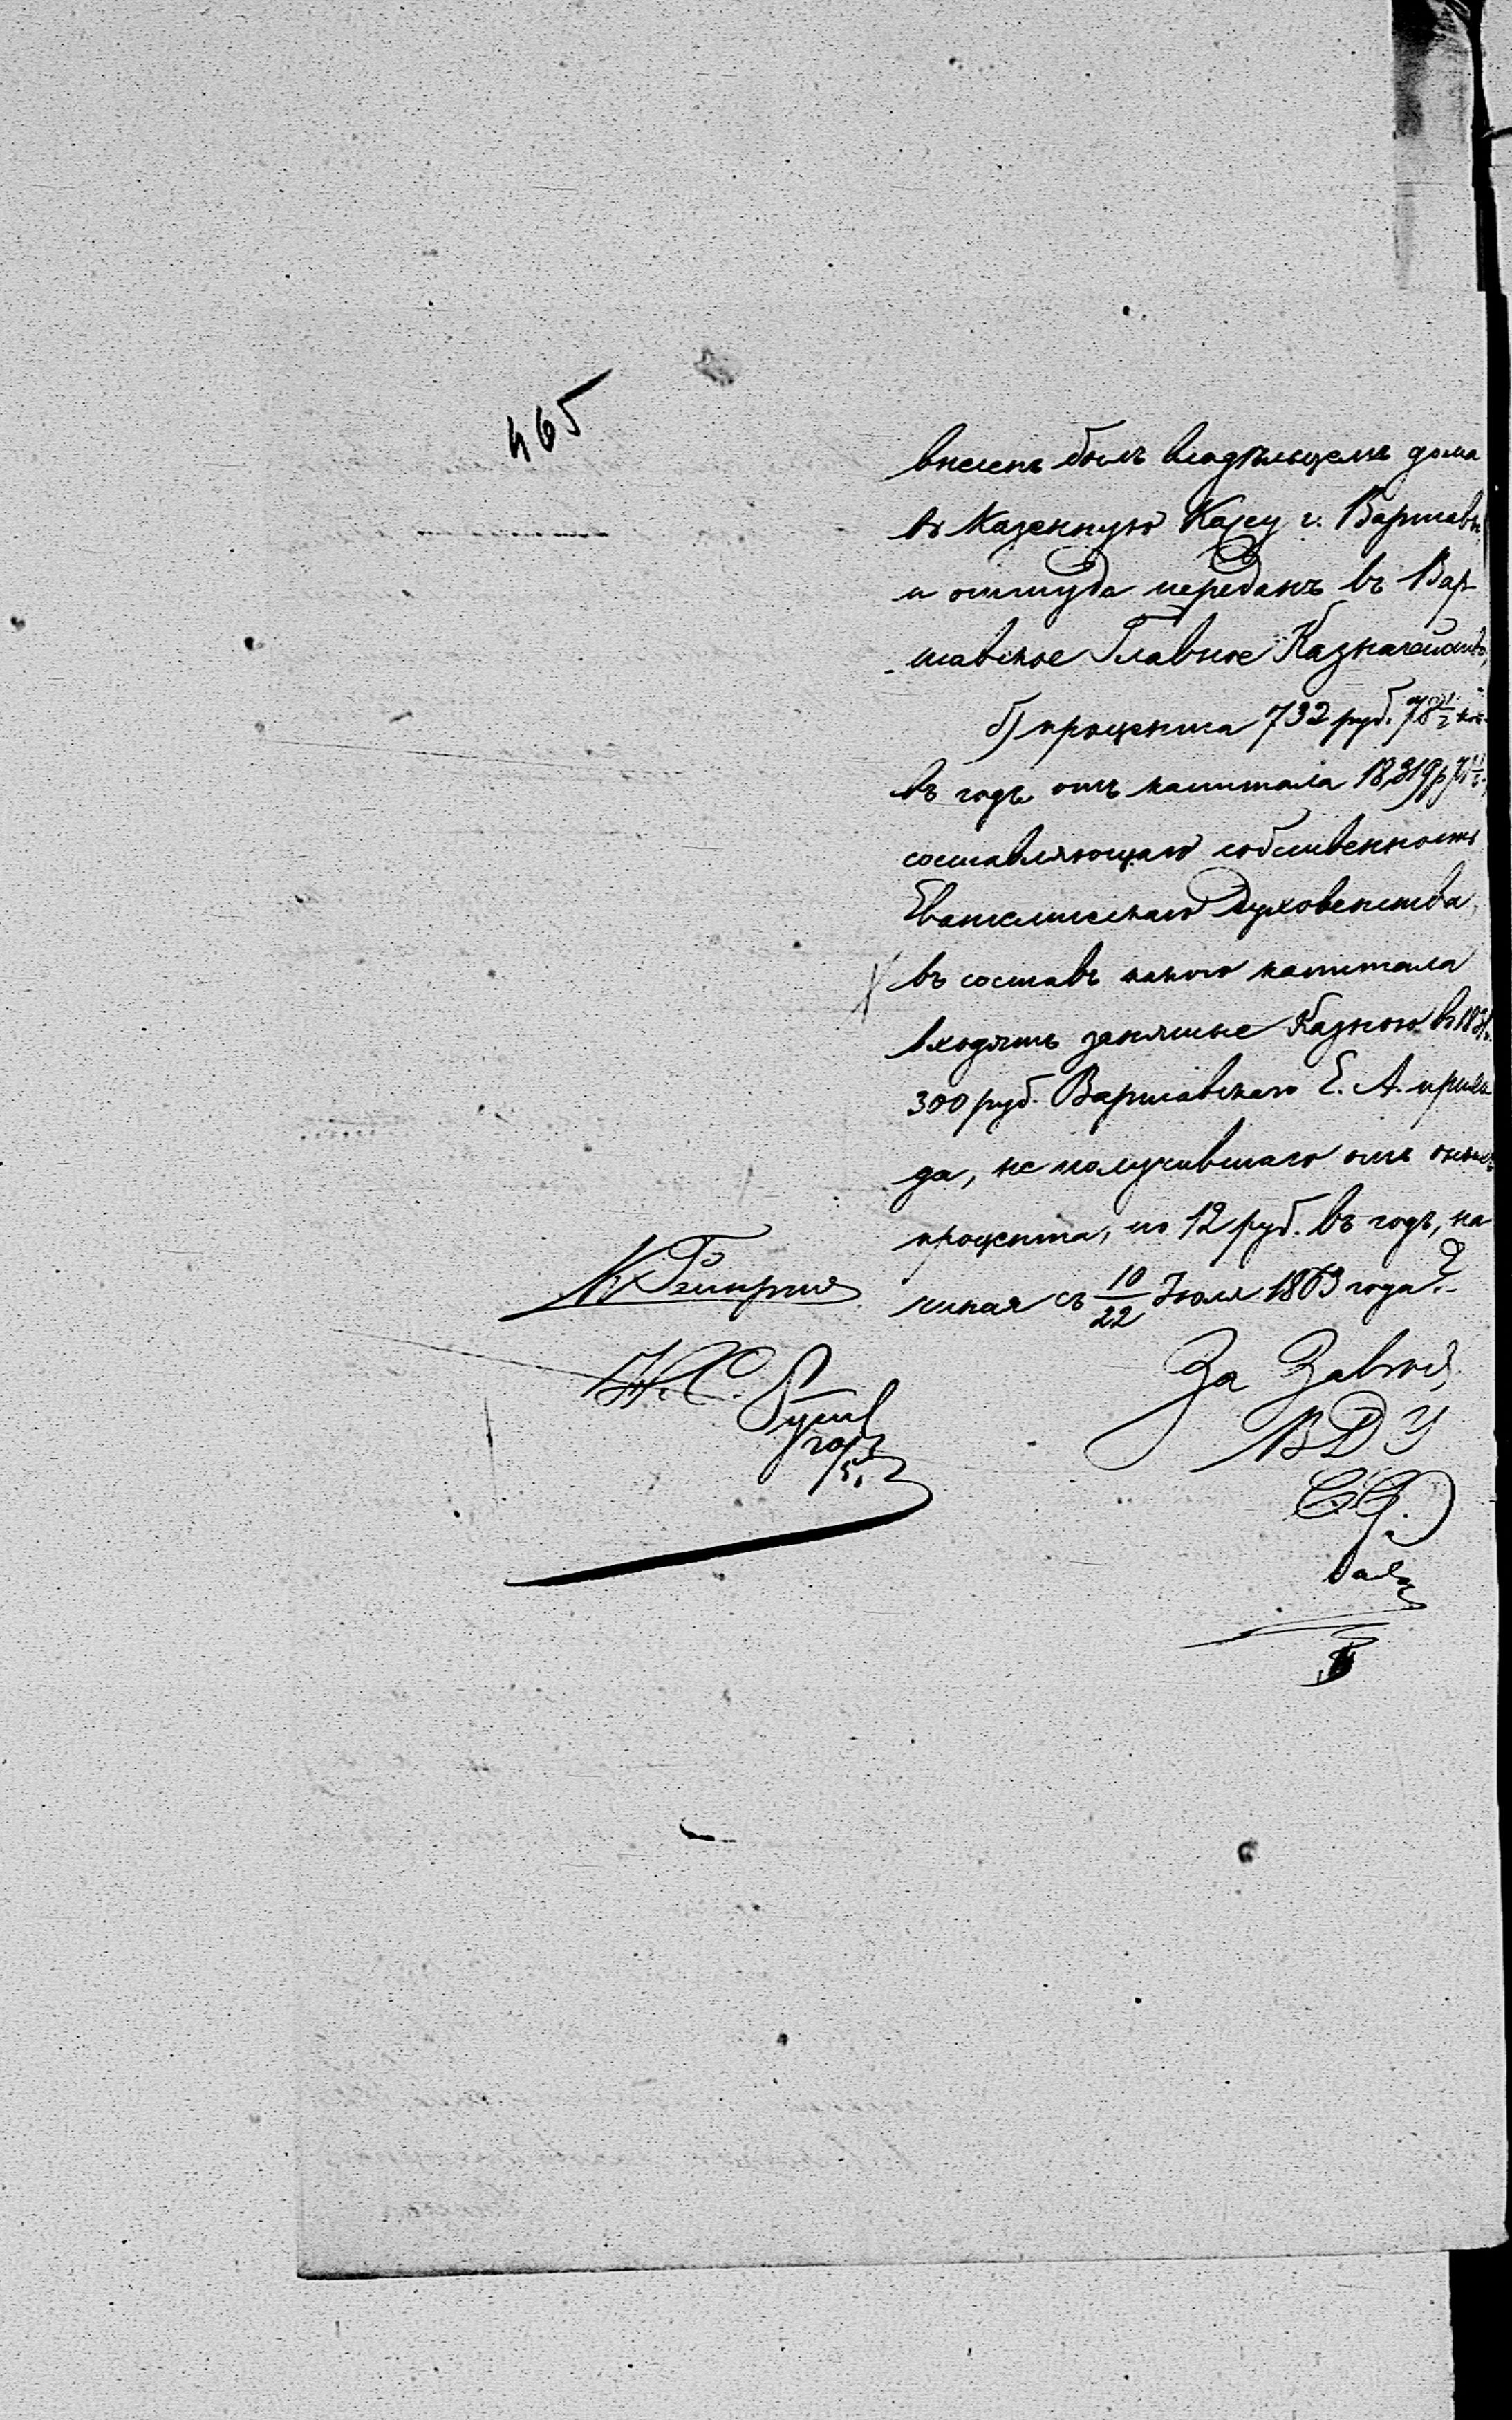 465
внесенъ былъ владѣльцемъ дома
въ Казенную Кассу г. Варшавы
и оттуда переданъ въ Вар-
шавское Главное Казначейство,
б) процента 732 руб. 78½ коп.
въ годъ отъ капитала 18,319 р.
составляющаго собственность
Евангелическаго Духовенства,
въ составъ какого капитала
входятъ занятые Казною въ
300 руб. Варшавскаго Е. А. прихо
да, не получившаго отъ оныхъ
процента, по 12 руб. въ годъ, на
чиная съ 10/22 Іюля 1863 года?
За Завѣд.
В Д У